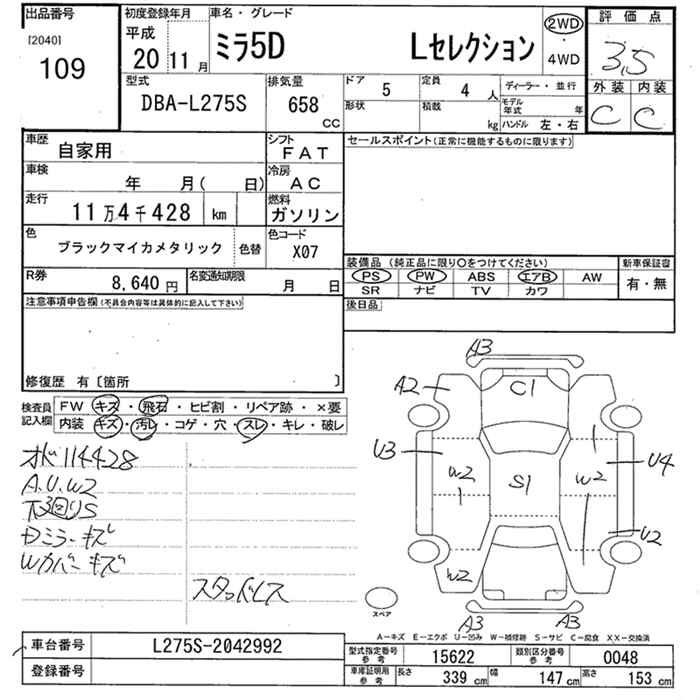 出品番号
[2040]
109
初度登録年月
平成
20 11月
車名・グレード
ミラ5D Lセレクション
2WD
・
4WD
評価点
3,5
外装 内装
C C
型式
DBA-L275S
排気量
658
CC
ドア
5
定員
4 人
形状
積載
kg
ディーラー・並行
モデル年式 年
ハンドル 左・右
車歴
自家用
シフト
FAT
車検
年 月( 日)
冷房
AC
走行
11万4千428 km
燃料
ガソリン
色
ブラックマイカメタリック
色替
色コード
X07
R券
8,640 円
名変通知期限
月 日
セールスポイント(正常に機能するものに限ります)
装備品 (純正品に限り○をつけてください)
PS PW ABS エアB AW
SR ナビ TV カワ
新車保証書
有・無
後日品
注意事項申告欄(不具合内容等は具体的に記入して下さい)
修復歴 有〔箇所 〕
検査員
記入欄
FW キズ・飛石・ヒビ割・リペア跡・×要
内装 キズ・汚レ・コゲ・穴・スレ・キレ・破レ
オド114428
A.U.W2
下回りS
Dミラーキズ
Wカバーキズ
スタッドレス
A3
A2
C1
U3
W2
S1
W2
U4
U2
W2
A3
A3
スペア
A-キズ E-エクボ U-凹み W-補修跡 S-サビ C-腐食 XX-交換済
車台番号
L275S-2042992
登録番号
型式指定番号
参考
15622
類別区分番号
参考
0048
車庫証明用
参考
長さ
339 cm
幅
147 cm
高さ
153 cm